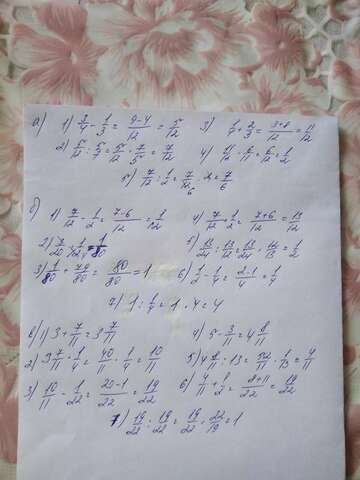 а) 1) 3/4 - 1/3 = 9-4/12 = 5/12 3) 1/4 + 2/3 = 3+8/12 = 11/12
2) 5/12 : 5/7 = 5/12 · 7/5 = 7/12 4) 11/12 · 6/11 = 6/12 = 1/2
5) 7/12 : 1/2 = 7/12 · 2 = 7/6
б) 1) 7/12 - 1/2 = 7-6/12 = 1/12 4) 7/12 + 1/2 = 7+6/12 = 13/12
2) 7/20 · 1/12 = 1/80 5) 13/24 : 13/12 = 13/24 · 12/13 = 1/2
3) 1/80 + 79/80 = 80/80 = 1 6) 1/2 - 1/4 = 2-1/4 = 1/4
7) 1 : 1/4 = 1 · 4 = 4
в) 1) 3 + 7/11 = 3 7/11 4) 5 - 3/11 = 4 8/11
2) 3 7/11 · 1/4 = 40/11 · 1/4 = 10/11 5) 4 8/11 : 13 = 52/11 · 1/13 = 4/11
3) 10/11 - 1/22 = 20-1/22 = 19/22 6) 4/11 + 1/2 = 8+11/22 = 19/22
7) 19/22 : 19/22 = 19/22 · 22/19 = 1